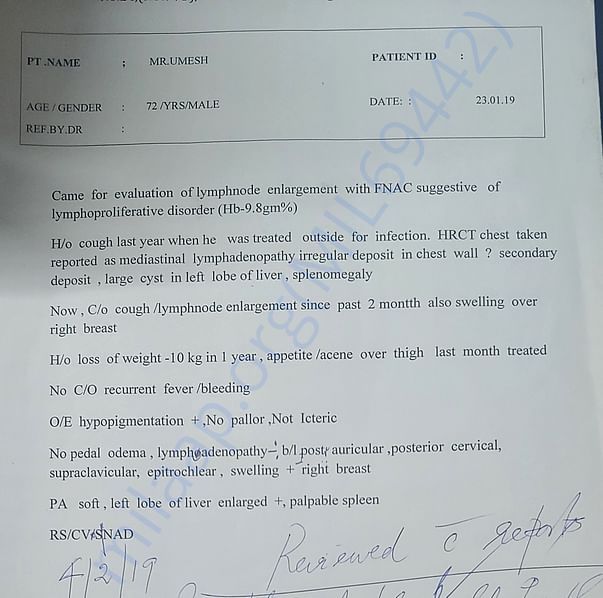 PT .NAME : MR.UMESH PATIENT ID :
AGE / GENDER : 72 /YRS/MALE DATE: : 23.01.19
REF.BY.DR :
Came for evaluation of lymphnode enlargement with FNAC suggestive of
lymphoproliferative disorder (Hb-9.8gm%)
H/o cough last year when he was treated outside for infection. HRCT chest taken
reported as mediastinal lymphadenopathy irregular deposit in chest wall ? secondary
deposit , large cyst in left lobe of liver , splenomegaly
Now , C/o cough /lymphnode enlargement since past 2 montth also swelling over
right breast
H/o loss of weight -10 kg in 1 year , appetite /acene over thigh last month treated
No C/O recurrent fever /bleeding
O/E hypopigmentation + ,No pallor ,Not Icteric
No pedal odema , lymphoadenopathy- b/l post auricular ,posterior cervical,
supraclavicular, epitrochlear , swelling + right breast
PA soft , left lobe of liver enlarged +, palpable spleen
RS/CVSNAD
4/2/19 Reviewed c reports
milaap.org(MIL69442)